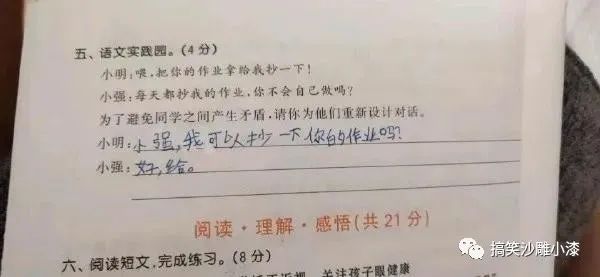 五、语文实践园。(4分)
小明:喂,把你的作业拿给我抄一下!
小强:每天都抄我的作业,你不会自己做吗?
为了避免同学之间产生矛盾,请你为他们重新设计对话。
小明:小强,我可以抄一下你的作业吗?
小强:好,给。
阅读·理解·感悟(共21分)
六、阅读短文,完成练习。(8分)
关注孩子眼健康
搞笑沙雕小漆